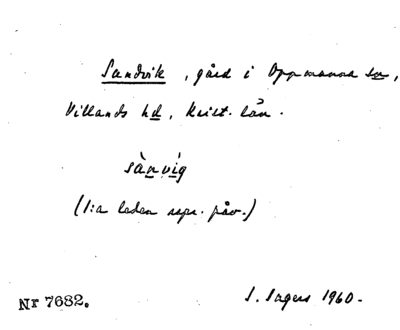 Sandvik, gård i Oppmanna sn,
Villands hd, Krist. län.
sànvíg
(1:a leden repr. påv.)
Nr 7682. S. Ingers 1960.